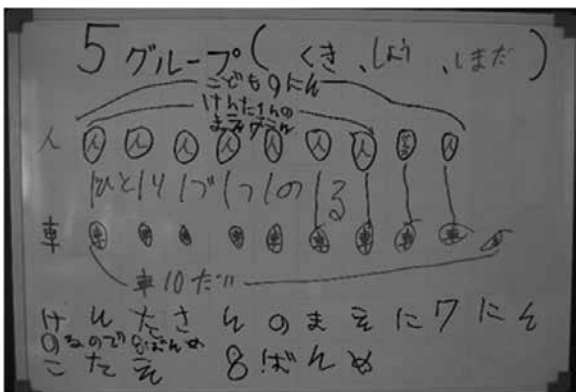 5グループ(くき、しよう、しまだ)
こども9にん
けんたさんの
まえ7にん
人 人 人 人 人 人 人 人 人
ひとり1づつのる
車 車 車 車 車 車 車 車 車
車10だい
けんたさんのまえに7にん
のなので8ばんめ
こたえ 8ばんめ